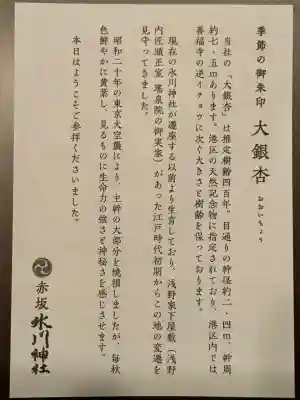 季節の御朱印　大銀杏
おおいちょう
当社の「大銀杏」は推定樹齢四百年。目通りの幹径約二・四ｍ、幹周
約七・五ｍあります。港区の天然記念物に指定されており、港区内では
善福寺の逆イチョウに次ぐ大きさと樹齢を保っております。
現在の氷川神社が遷座する以前より生育しており、浅野家下屋敷（浅野
内匠頭正室 瑤泉院の御実家）があった江戸時代初期からこの地の変遷を
見守ってきました。
昭和二十年の東京大空襲により、主幹の大部分を焼損しましたが、毎秋
色鮮やかに黄葉し、見るものに生命力の強さと神秘さを感じさせます。
本日はようこそご参拝くださいました。
赤坂 氷川神社